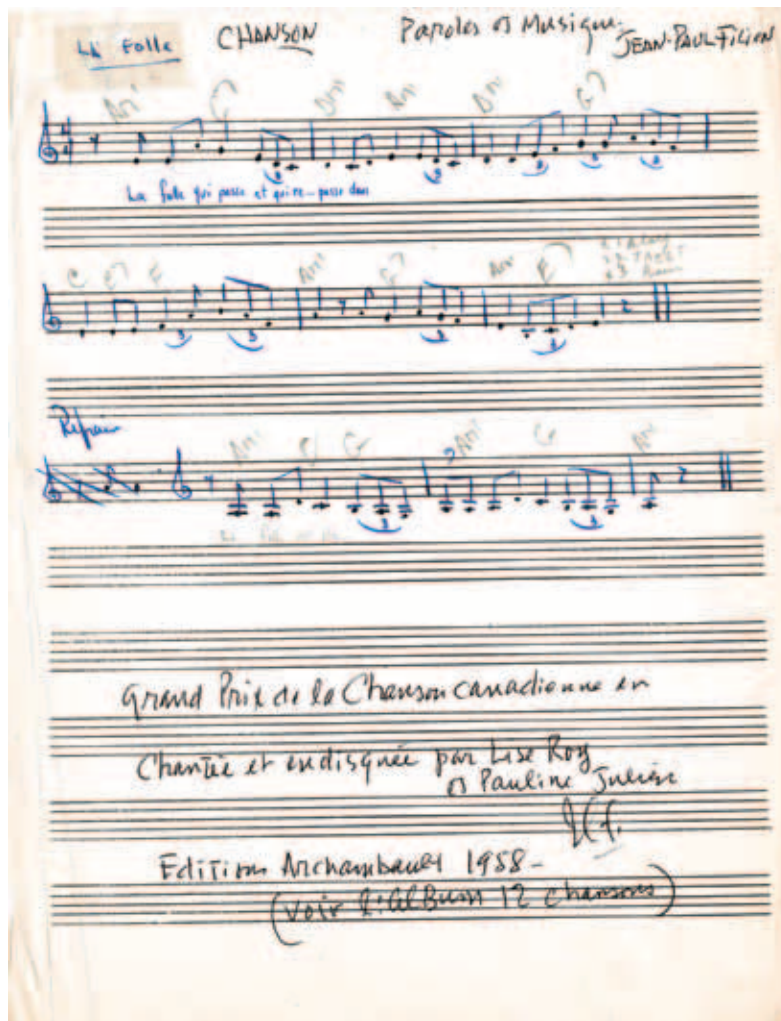 La Folle CHANSON Paroles et Musique JEAN-PAUL FILION
Am G7 Dm Am Dm G7
La folle qui passe et qui re-passe dans
C E7 E Am G7 Am E7
Refrain
Am G Am G Am
Grand Prix de la Chanson canadienne en
Chantée et endisquée par Lise Roy
et Pauline Julien
Editions Archambault 1958-
(Voir l'alBum 12 chansons)